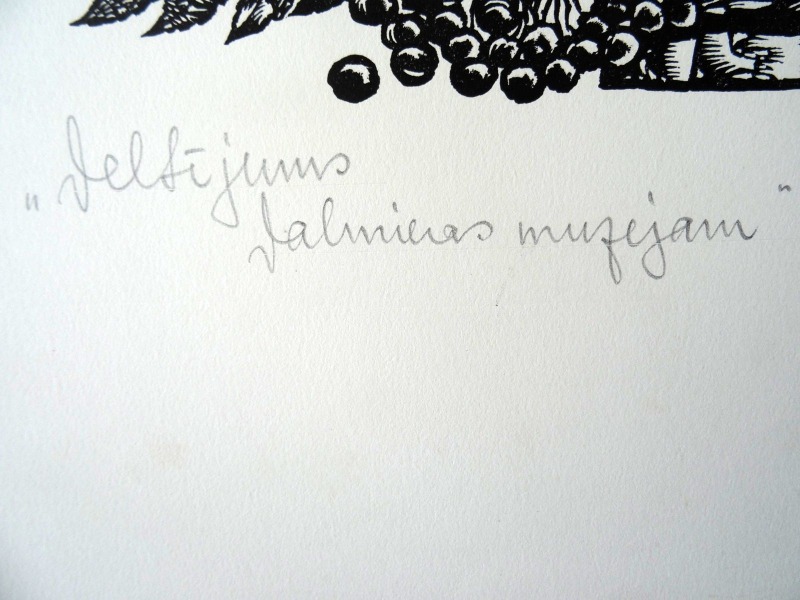 „Veltījums
Valmieras muzejam"